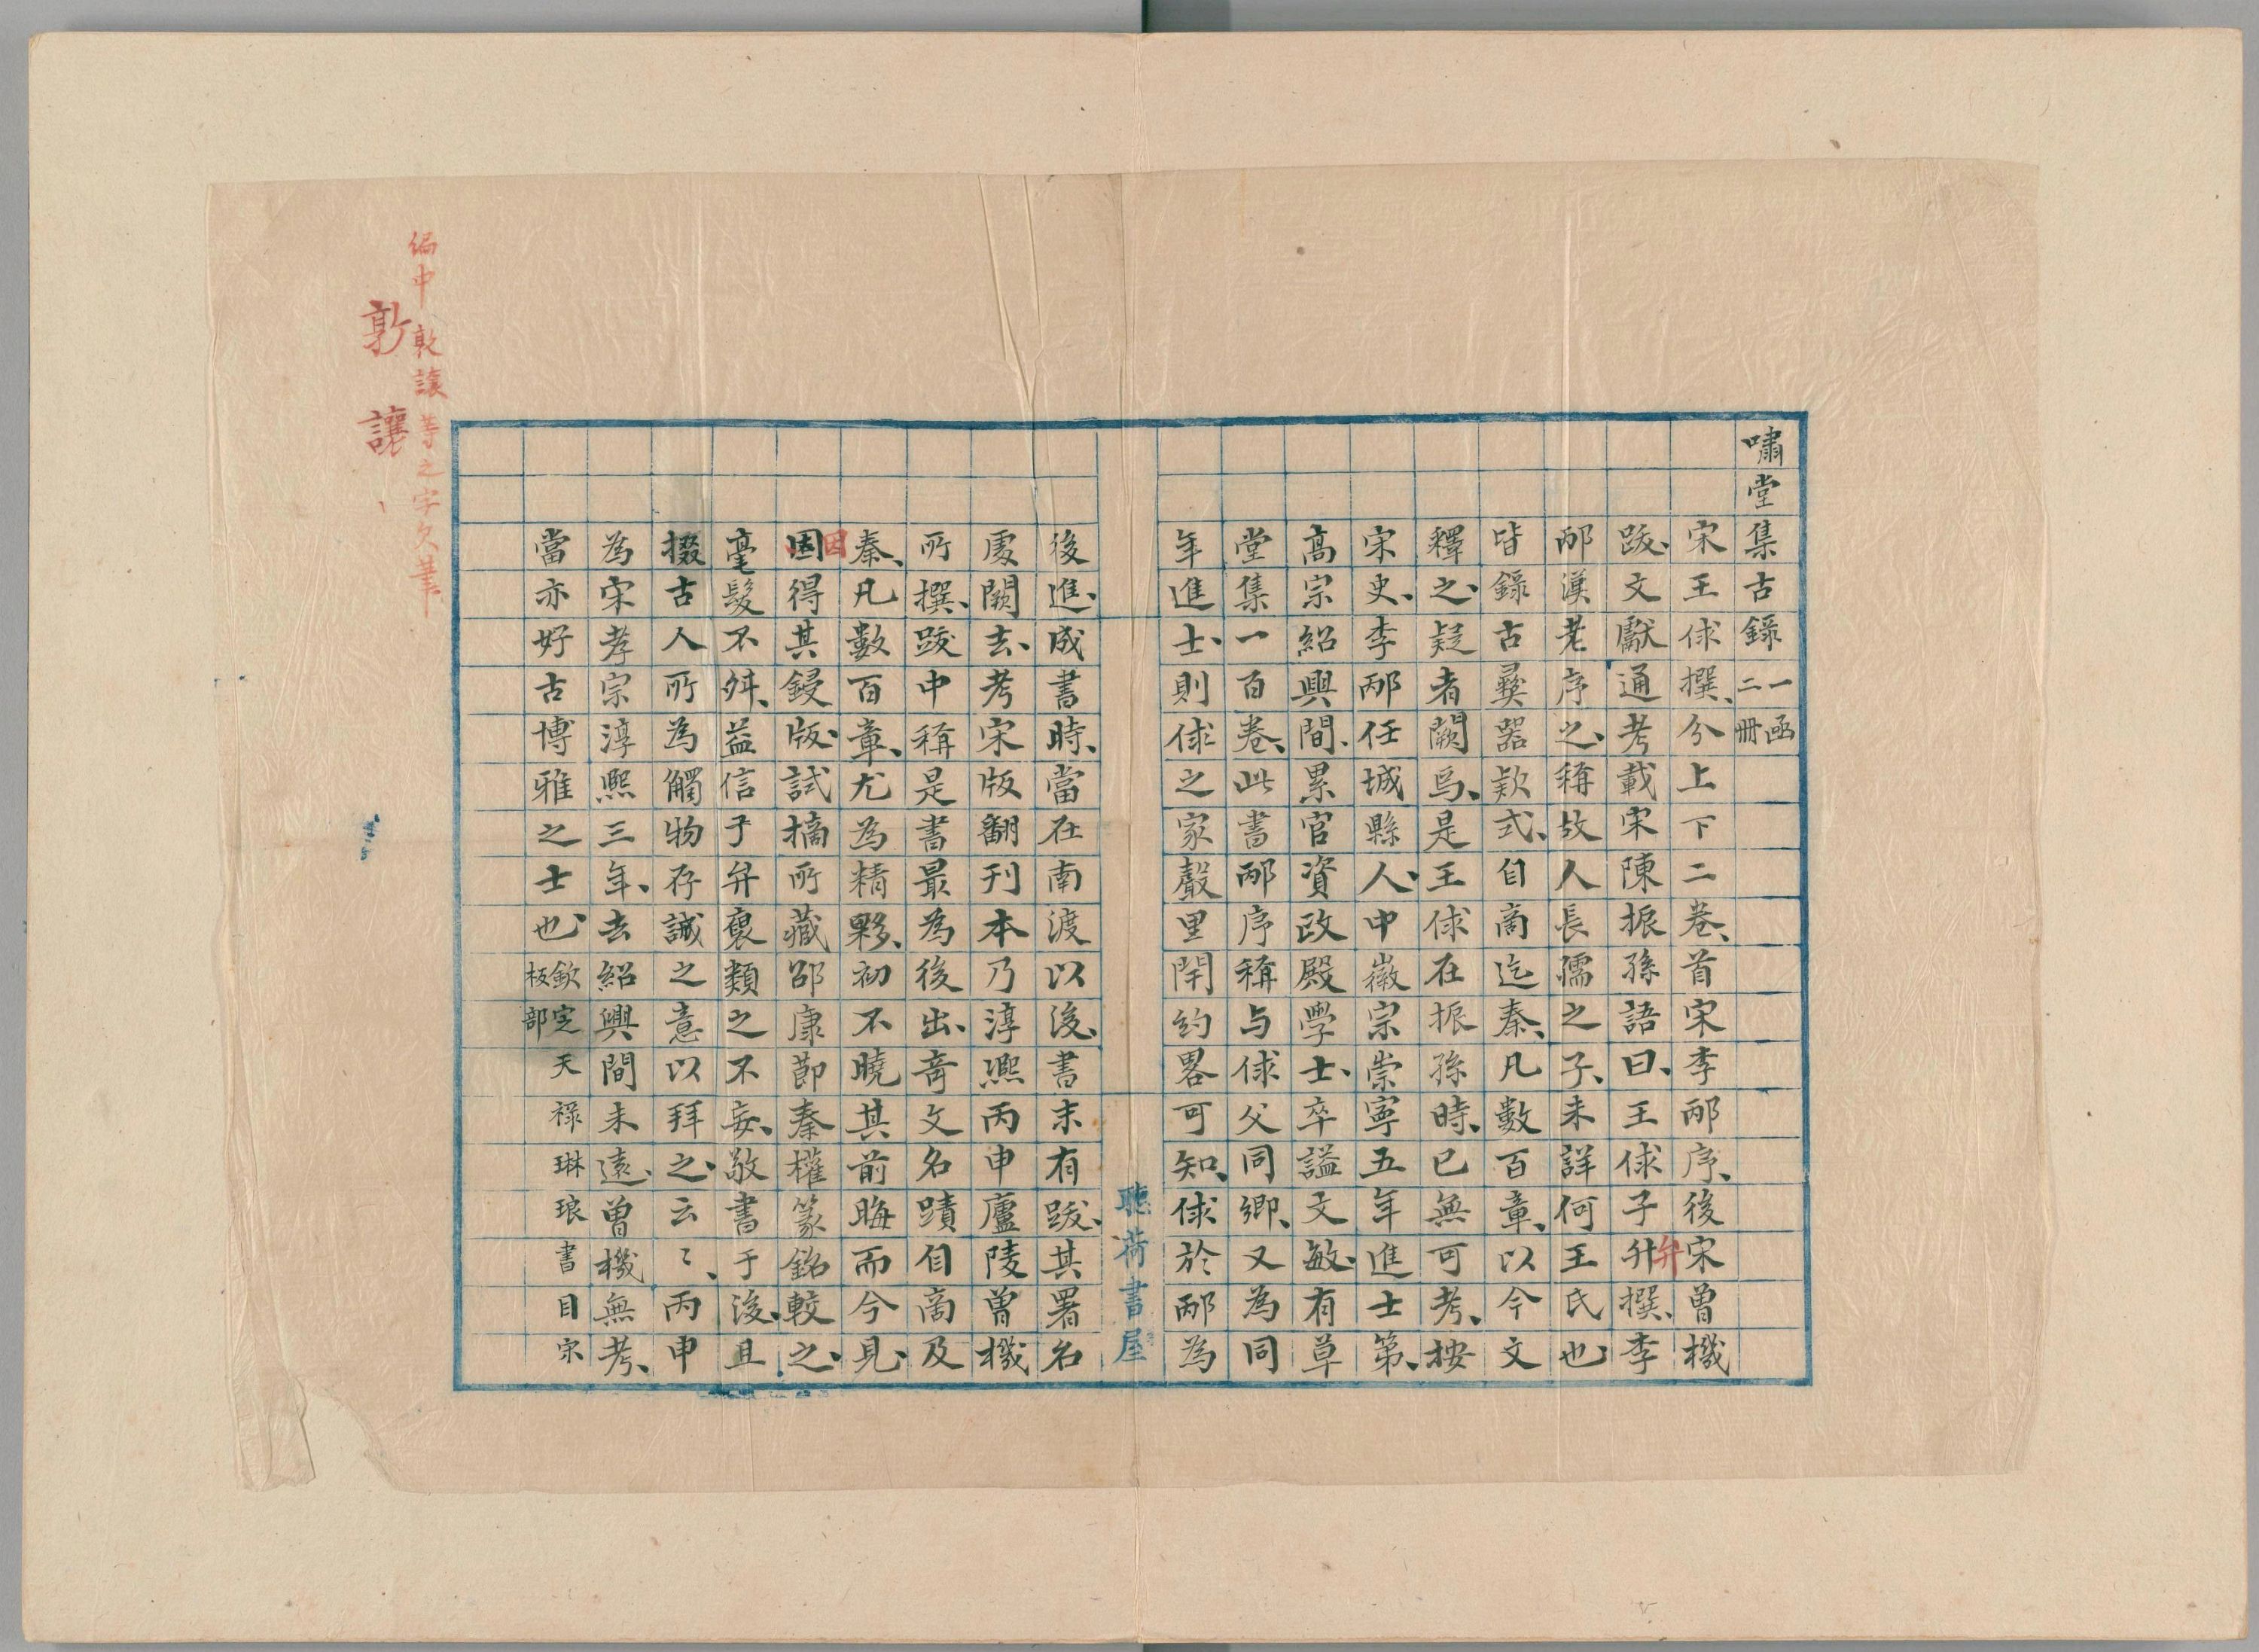 嘯堂集古錄一函二冊
宋王俅撰分上下二卷首宋李邴序後宋曾機
跋文獻通考載宋陳振孫語曰王俅子升弁撰李
邴漢老序之稱故人長孺之子未詳何王氏也
皆錄古彞器款式自商迄秦凡數百章以今文
釋之疑者闕焉是王俅在振孫時已無可考按
宋史李邴任城縣人中徽宗崇寧五年進士第
高宗紹興間累官資政殿學士卒諡文敏有草
堂集一百卷此書邴序稱与俅父同鄉又為同
年進士則俅之家聲里閈約畧可知俅於邴為
後進成書時當在南渡以後書末有跋其署名
處闕去考宋版翻刊本乃淳熙丙申廬陵曾機
所撰跋中稱是書最為後出奇文名蹟自商及
秦凡數百章尤為精夥初不曉其前晦而今見
固因得其鋟版試摘所藏邵康節秦權篆銘較之
毫髮不舛益信子弁裒類之不妄敬書于後且
掇古人所為觸物存誠之意以拜之云〻丙申
為宋孝宗淳熙三年去紹興間未遠曾機無考
當亦好古博雅之士也欽定天祿琳琅書目宋板部
聽荷書屋
編中敦讓等之字欠筆
敦讓